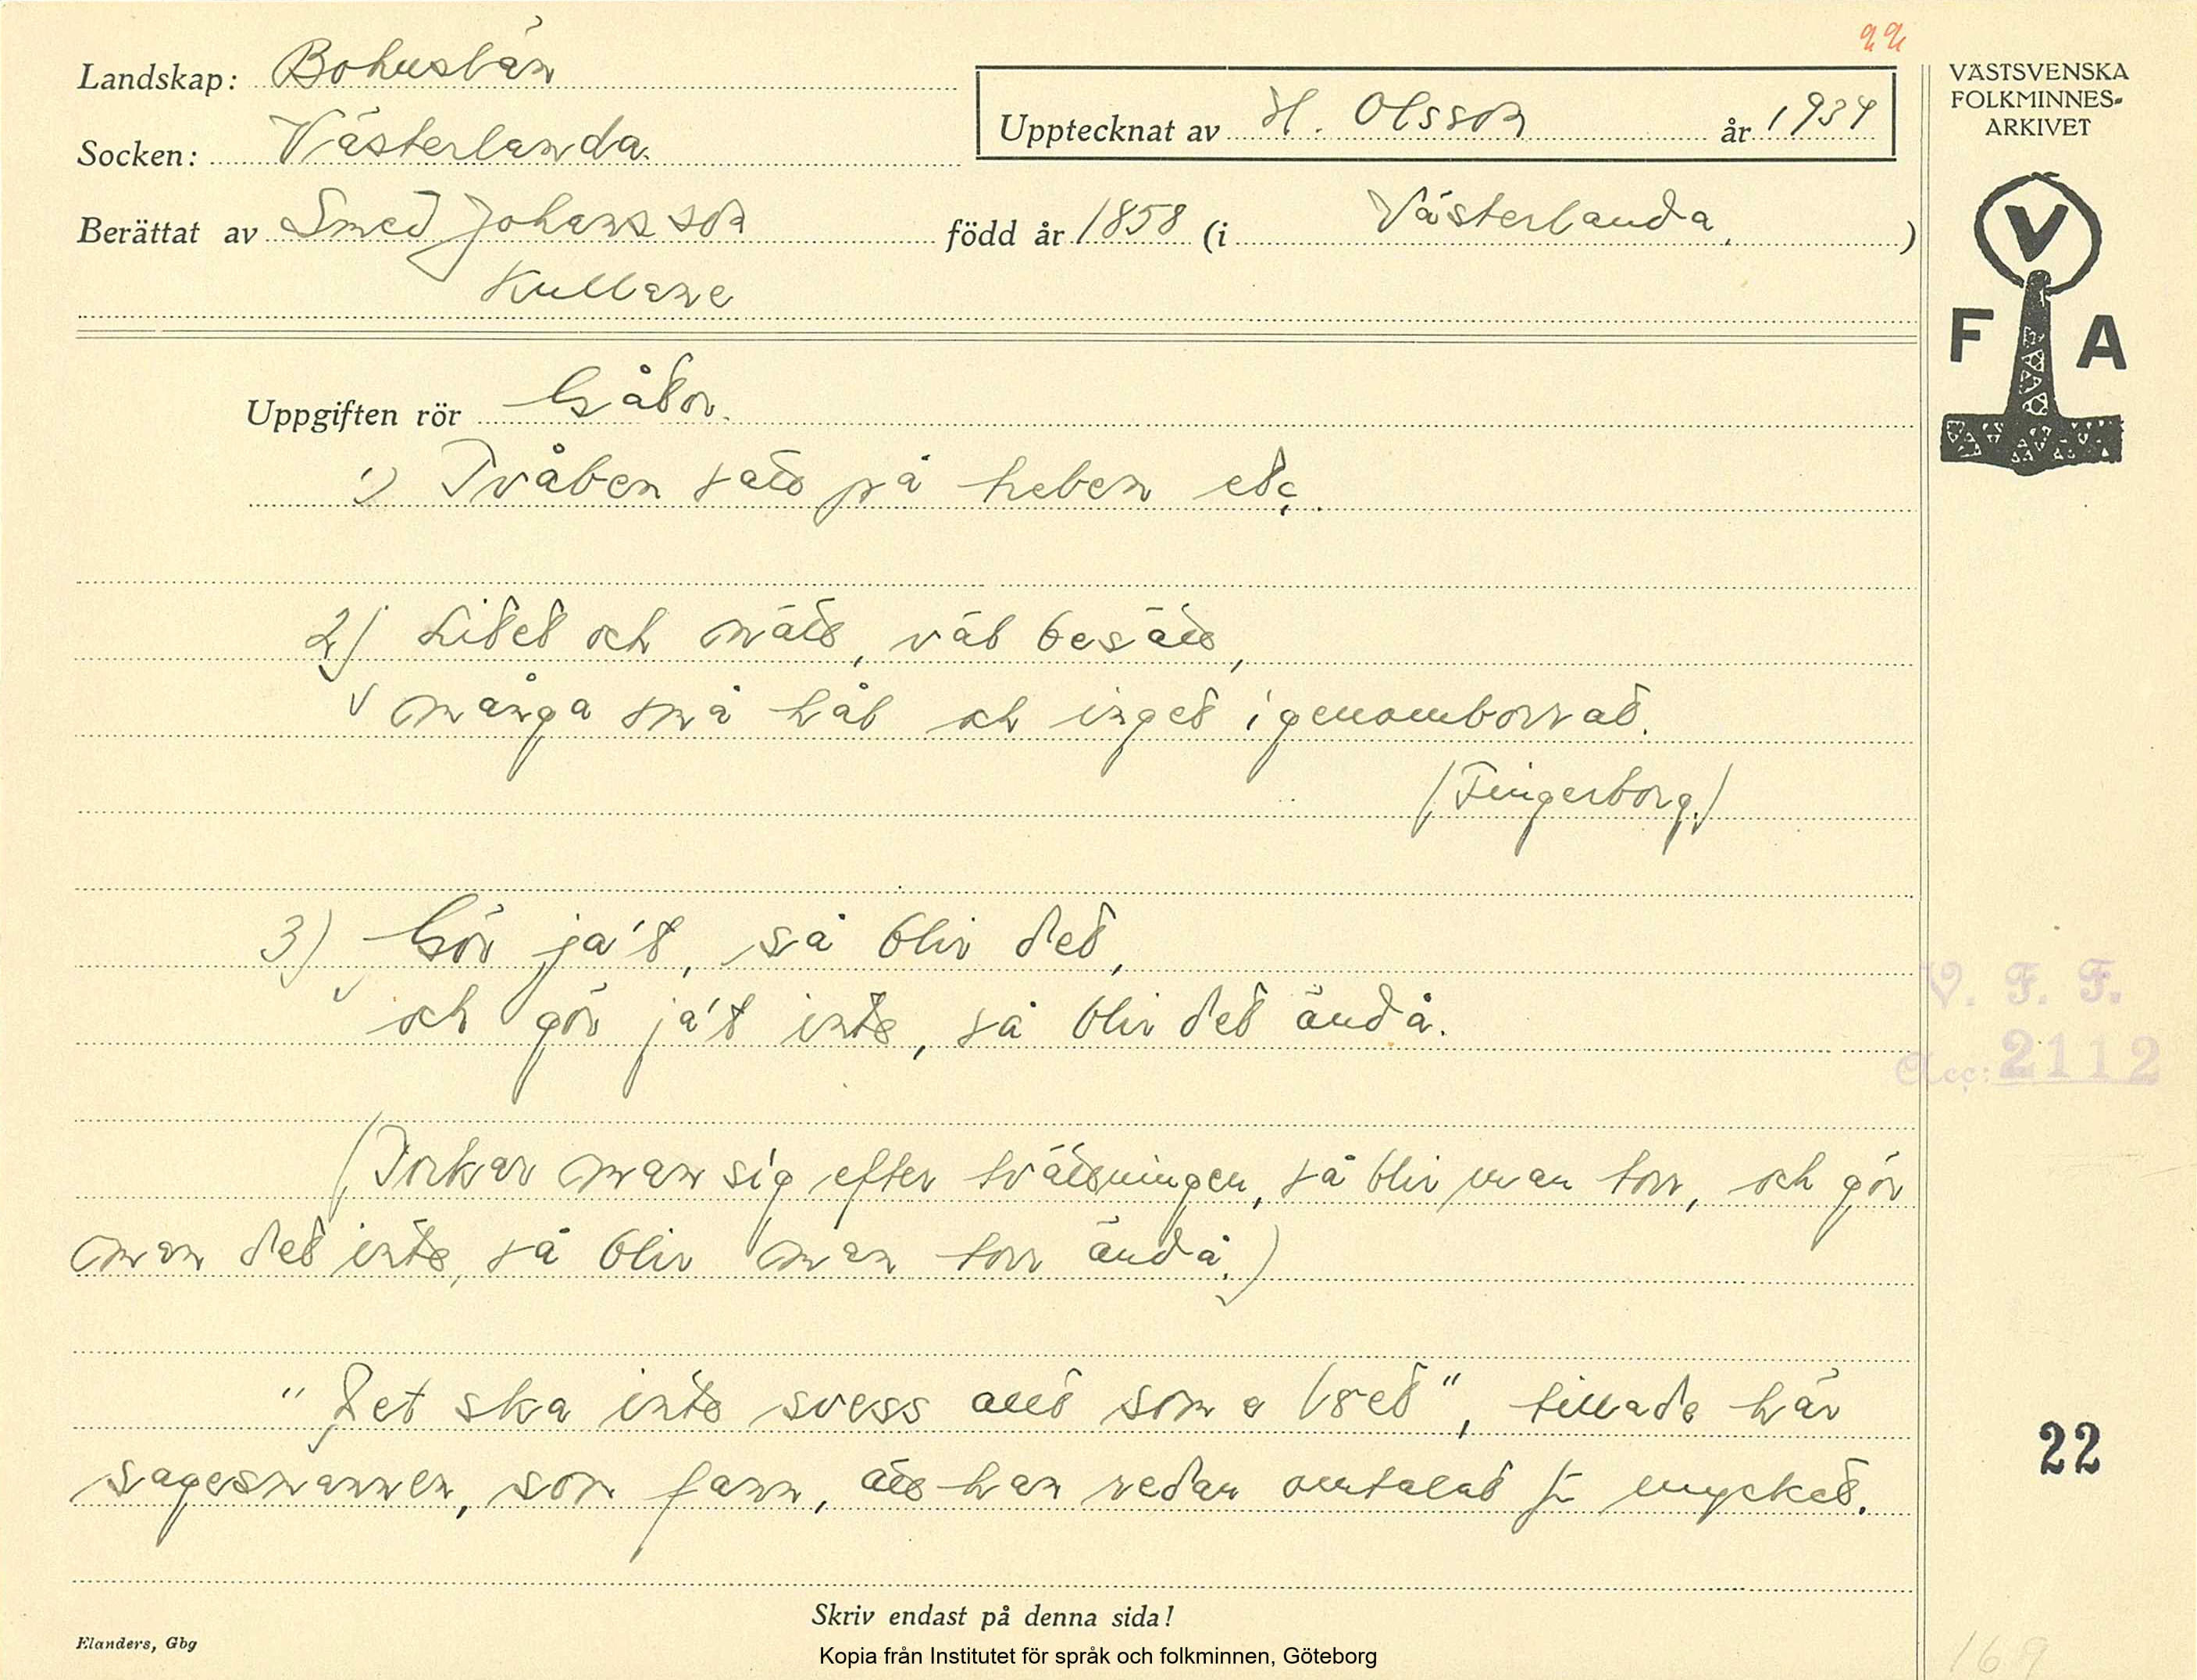 22
Landskap: Bohuslän
Socken: Västerlanda.
Upptecknat av H. Olsson år 1934
Berättat av Smed Johansson född år 1858 (i Västerlanda.)
Kullane
VÄSTSVENSKA
FOLKMINNES-
ARKIVET
V
F A
Uppgiften rör Gåtor.
1) Tvåben satt på treben etc.
2) Litet och nätt, väl besätt,
många små hål och inget igenomborrat.
(Fingerborg.)
3) Gör ja't, så blir det,
och gör ja't inte, så blir det ändå.
V. F. F.
Acc: 2112
(Torkar man sig efter tvättningen, så blir man torr, och gör
man det inte, så blir man torr ändå.)
"Det ska inte svess allt som e", tillade här
sagesmannen, som fann, att han redan omtalat för mycket.
22
Skriv endast på denna sida!
Elanders, Gbg
Kopia från Institutet för språk och folkminnen, Göteborg
169